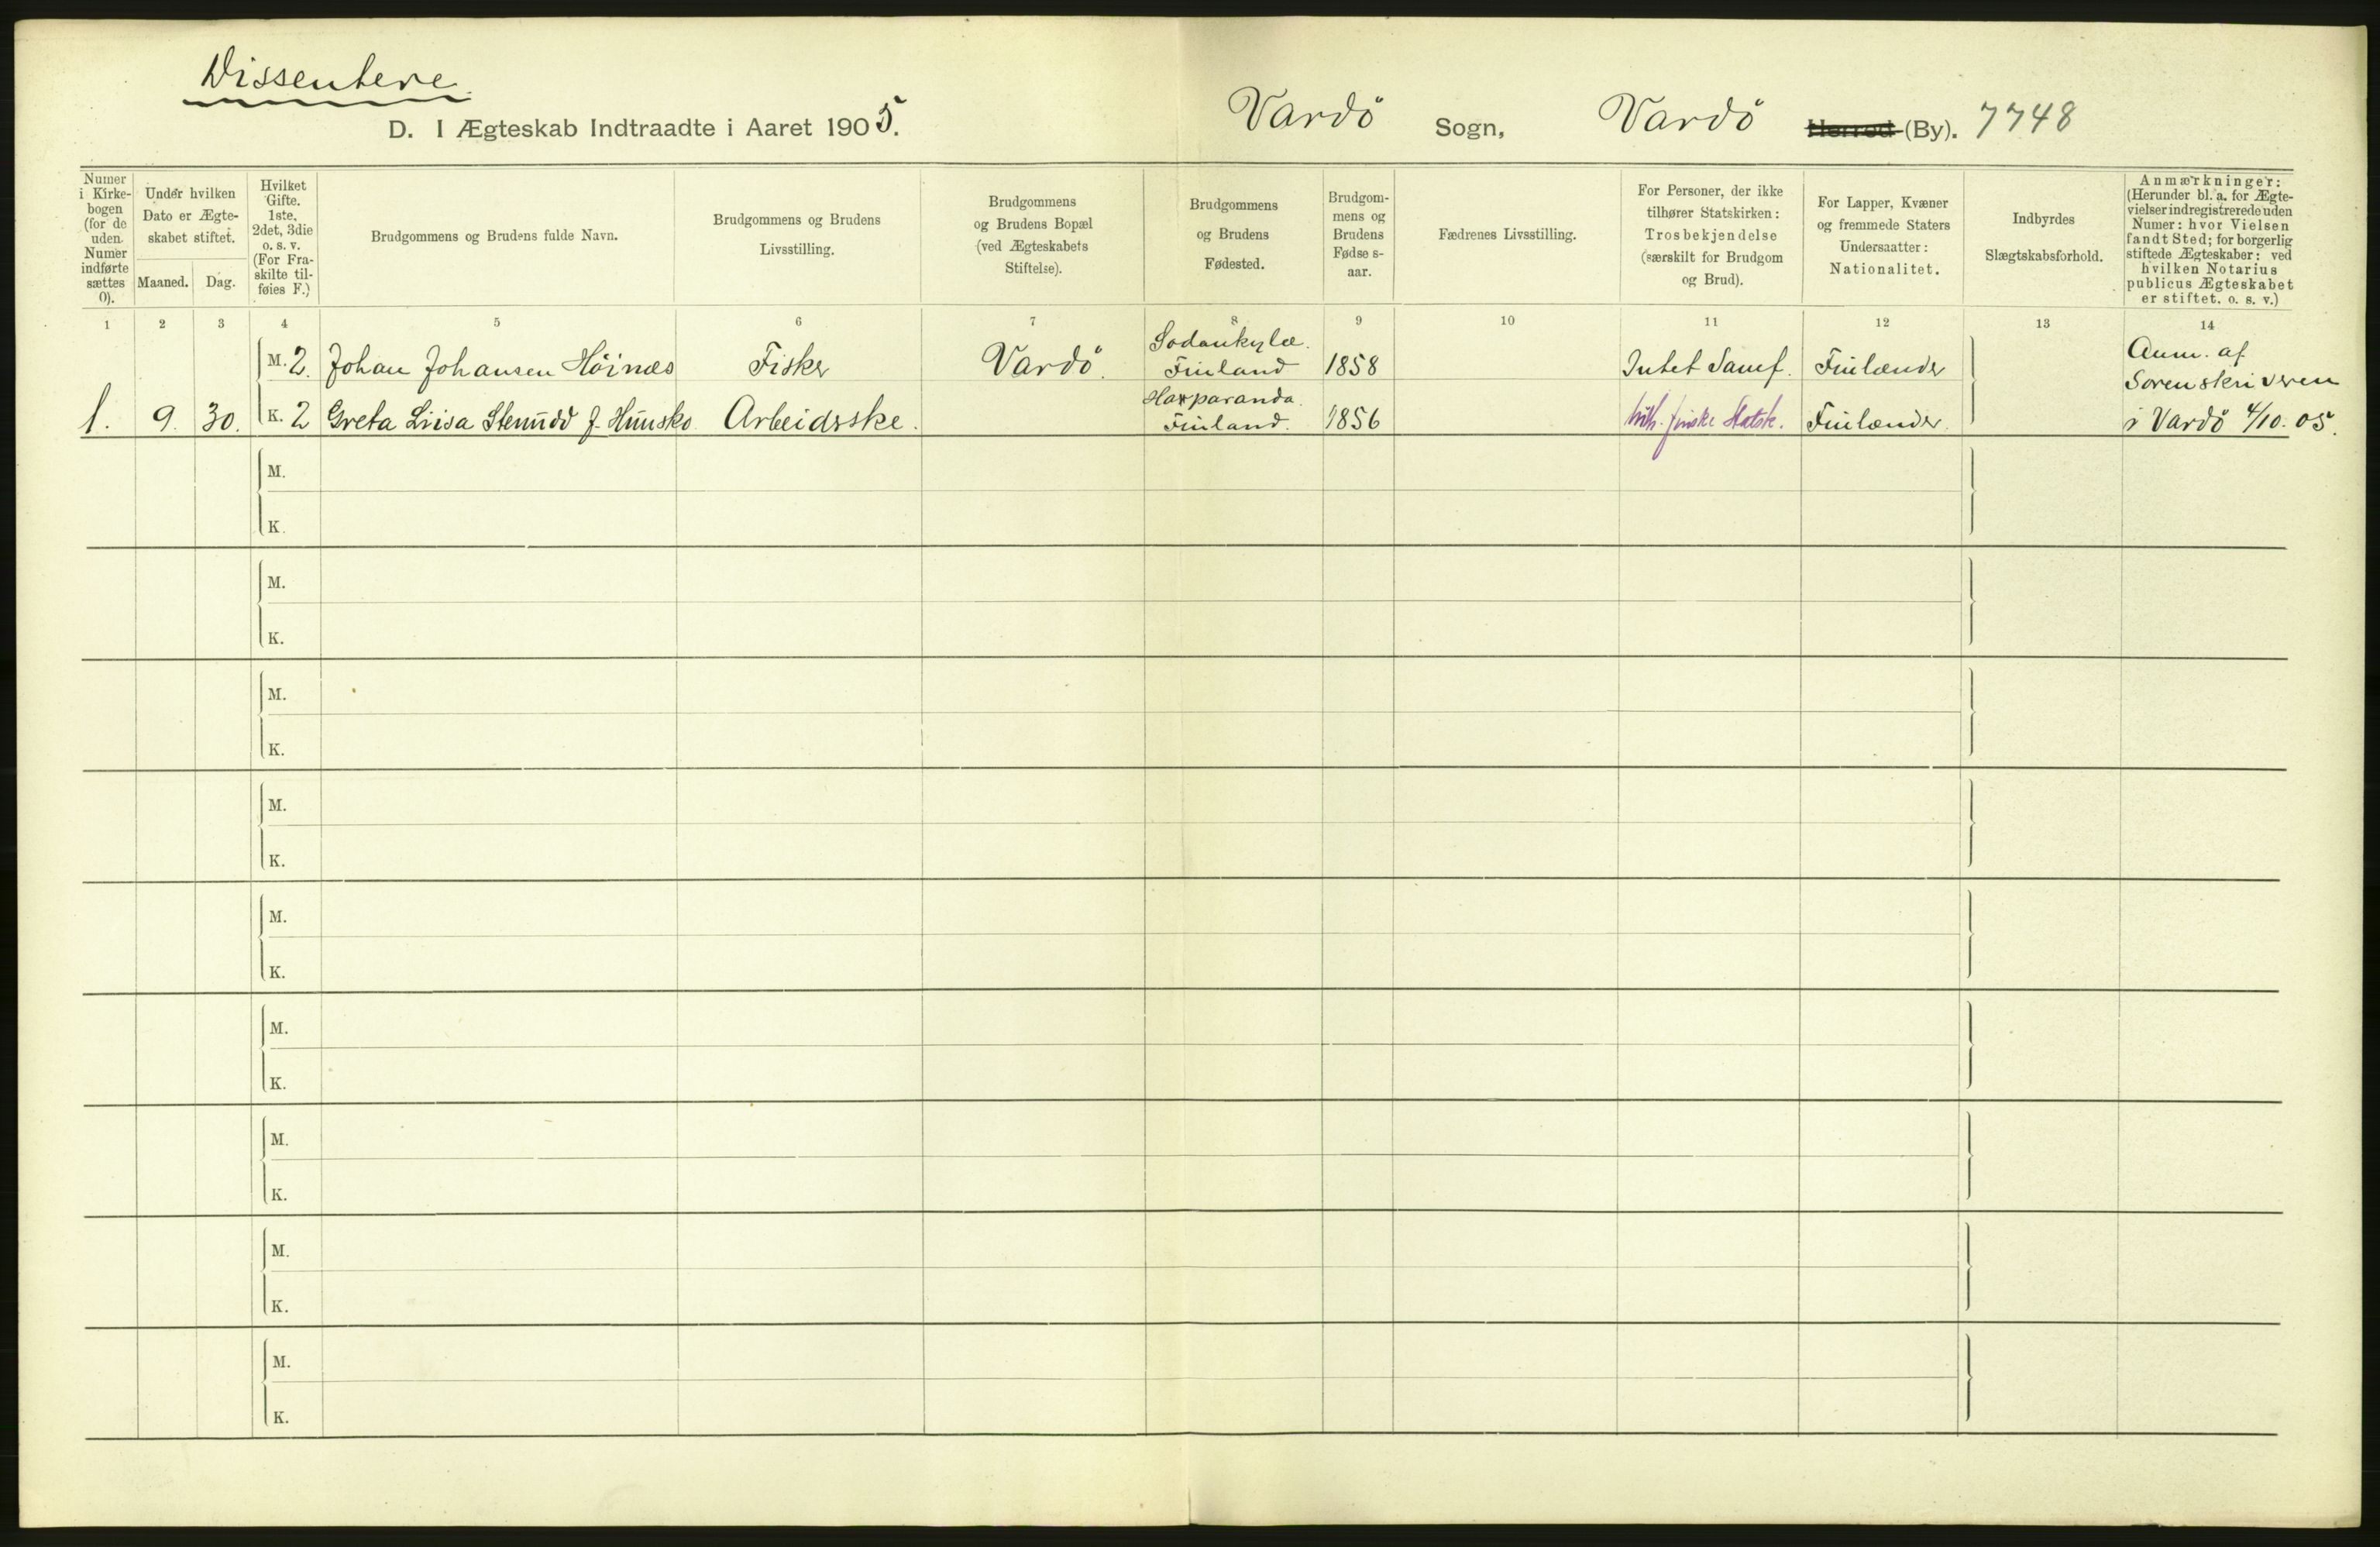 Dissentere.
D. I Ægteskab Indtraadte i Aaret 1905.
Vardö Sogn, Vardö Herred (By). 7748
Numer
i Kirke-
bogen
(for de
uden
Numer
indførte
sættes
0).
Under hvilken
Dato er Ægte-
skabet stiftet.
Maaned.
Dag.
Hvilket
Gifte.
1ste,
2det, 3die
o. s. v.
(For Fra-
skilte til-
føies F.)
Brudgommens og Brudens fulde Navn.
Brudgommens og Brudens
Livsstilling.
Brudgommens
og Brudens Bopæl
(ved Ægteskabets
Stiftelse).
Brudgommens
og Brudens
Fødested.
Brudgom-
mens og
Brudens
Fødse s-
aar.
Fædrenes Livsstilling.
For Personer, der ikke
tilhører Statskirken:
Trosbekjendelse
(særskilt for Brudgom
og Brud).
For Lapper, Kvæner
og fremmede Staters
Undersaatter:
Nationalitet.
Indbyrdes
Slægtskabsforhold.
Anmærkninger:
(Herunder bl. a. for Ægte-
vielser indregistrerede uden
Numer: hvor Vielsen
fandt Sted; for borgerlig
stiftede Ægteskaber: ved
hvilken Notarius
publicus Ægteskabet
er stiftet. o. s. v.)
1 2 3 4 5 6 7 8 9 10 11 12 13 14
M. 2. Johan Johansen Höinæs Fisker Vardö. Sodankylæ. Finland 1858 Intet Samf. Finlænder
1. 9. 30. K. 2 Greta Liisa f. Arbeidsske. Haparanda. Finland. 1856 finske Statsk. Finlænder.
Anm. af
Sorenskriveren
i Vardö 4/10. 05.
M.
K.
M.
K.
M.
K.
M.
K.
M.
K.
M.
K.
M.
K.
M.
K.
M.
K.